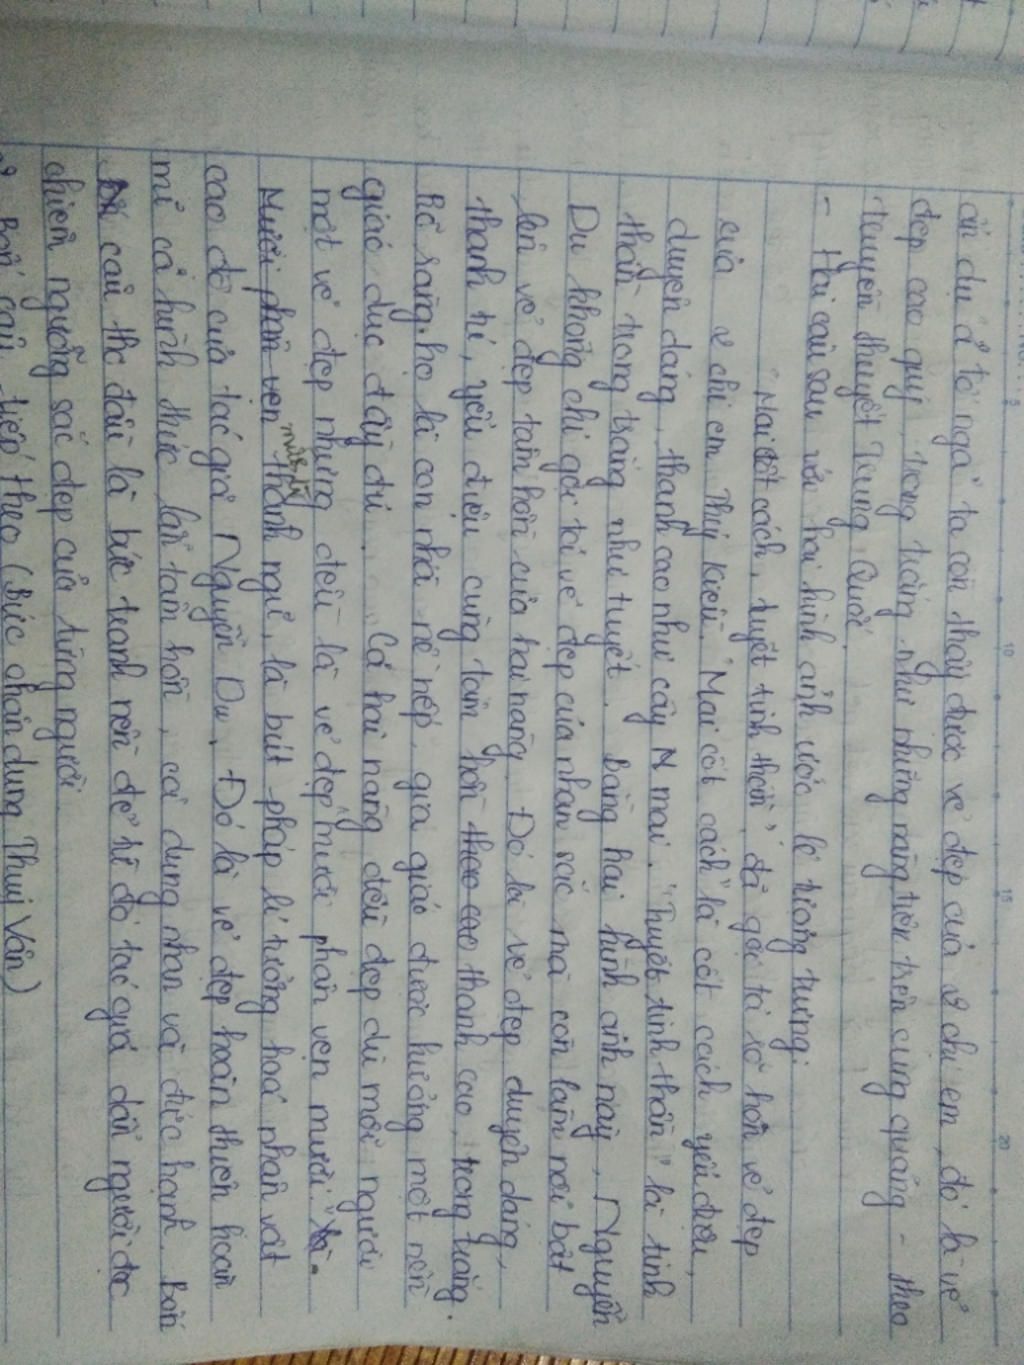 ẩn dụ ả tố nga ta còn thấy được vẻ đẹp của 2 chị em, đó là vẻ
đẹp cao quý, trong trắng như những nàng tiên trên cung quảng - theo
truyền thuyết Trung Quốc.
- Hai câu sau với hai hình ảnh ước lệ tượng trưng:
"Mai cốt cách, tuyết tinh thần", đã gợi tả rõ hơn vẻ đẹp
của 2 chị em Thúy Kiều. "Mai cốt cách" là cốt cách yểu điệu,
duyên dáng, thanh cao như cây mai. "Tuyết tinh thần" là tinh
thần trong trắng như tuyết. Bằng hai hình ảnh này, Nguyễn
Du không chỉ gợi tả vẻ đẹp của nhan sắc mà còn làm nổi bật
lên vẻ đẹp tâm hồn của hai nàng. Đó là vẻ đẹp duyên dáng,
thanh tú, yểu điệu cùng tâm hồn thanh cao, trong trắng.
Rõ ràng họ là con nhà nề nếp, gia giáo được hưởng một nền
giáo dục đầy đủ. Cả hai nàng đều đẹp dù mỗi người
một vẻ đẹp nhưng đều là vẻ đẹp "mười phân vẹn mười".
thành ngữ, là bút pháp lí tưởng hoá nhân vật
cao độ của tác giả Nguyễn Du. Đó là vẻ đẹp hoàn thiện hoàn
mĩ cả hình thức lẫn tâm hồn, cả dung nhan và đức hạnh. Bốn
câu thơ đầu là bức tranh nền để từ đó tác giả dẫn người đọc
chiêm ngưỡng sắc đẹp của từng người.
Bốn câu tiếp theo (Bức chân dung Thuý Vân)